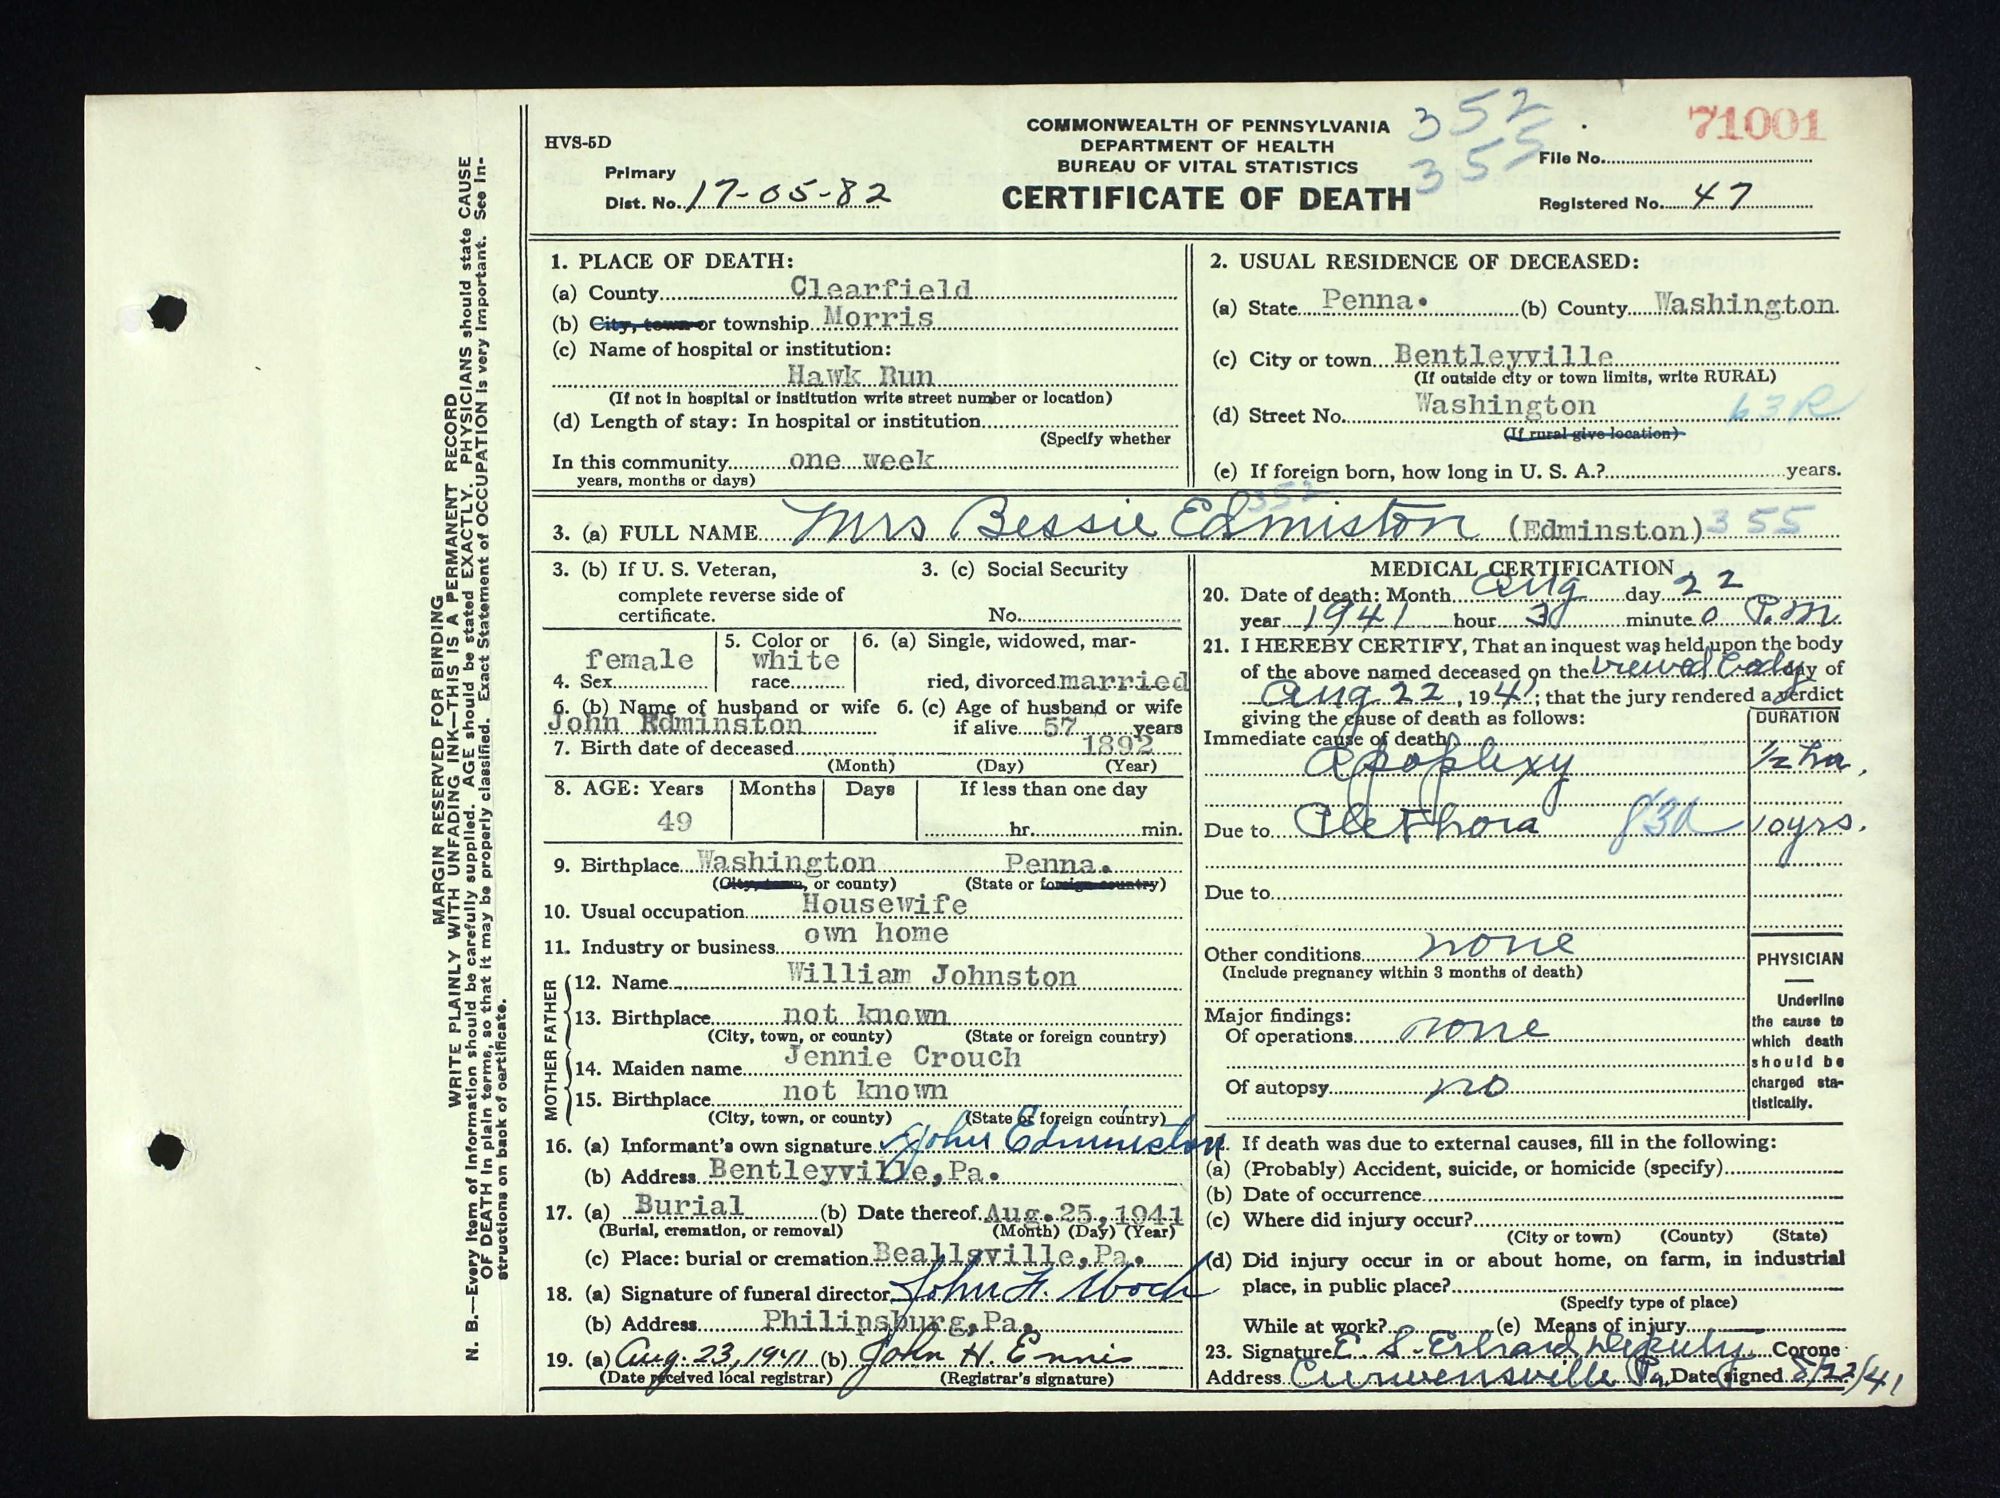 MARGIN RESERVED FOR BINDING
WRITE PLAINLY WITH UNFADING INK—THIS IS A PERMANENT RECORD
N. B.—Every item of information should be carefully supplied. AGE should be stated EXACTLY. PHYSICIANS should state CAUSE
OF DEATH in plain terms, so that it may be properly classified. Exact Statement of OCCUPATION is very important. See in-
structions on back of certificate.
HVS-5D
Primary
Dist. No. 17-05-82
COMMONWEALTH OF PENNSYLVANIA
DEPARTMENT OF HEALTH
BUREAU OF VITAL STATISTICS
CERTIFICATE OF DEATH
352
355
71001
File No.
Registered No. 47
1. PLACE OF DEATH:
(a) County Clearfield
(b) City, town or township Morris
(c) Name of hospital or institution:
Hawk Run
(If not in hospital or institution write street number or location)
(d) Length of stay: In hospital or institution
(Specify whether
In this community one week
years, months or days)
2. USUAL RESIDENCE OF DECEASED:
(a) State Penna. (b) County Washington
(c) City or town Bentleyville
(If outside city or town limits, write RURAL)
(d) Street No. Washington 63R
(If rural give location)
(e) If foreign born, how long in U. S. A.? years.
352
3. (a) FULL NAME Mrs Bessie Edmiston (Edminston) 355
3. (b) If U. S. Veteran,
complete reverse side of
certificate.
3. (c) Social Security
No.
4. Sex female
5. Color or
race white
6. (a) Single, widowed, mar-
ried, divorced married
6. (b) Name of husband or wife
John Edminston
6. (c) Age of husband or wife
if alive 57 years
7. Birth date of deceased 1892
(Month) (Day) (Year)
8. AGE: Years Months Days If less than one day
49 hr. min.
9. Birthplace Washington Penna.
(City, town, or county) (State or foreign country)
10. Usual occupation Housewife
11. Industry or business own home
FATHER
12. Name William Johnston
13. Birthplace not known
(City, town, or county) (State or foreign country)
MOTHER
14. Maiden name Jennie Crouch
15. Birthplace not known
(City, town, or county) (State or foreign country)
16. (a) Informant's own signature John Edminston
(b) Address Bentleyville, Pa.
17. (a) Burial (b) Date thereof Aug. 25, 1941
(Burial, cremation, or removal) (Month) (Day) (Year)
(c) Place: burial or cremation Beallsville, Pa.
18. (a) Signature of funeral director John F.
(b) Address Philipsburg, Pa.
19. (a) Aug. 23, 1941 (b) John H. Ennis
(Date received local registrar) (Registrar's signature)
MEDICAL CERTIFICATION
20. Date of death: Month Aug day 22
year 1941 hour 3 minute 0 P.M.
21. I HEREBY CERTIFY, That an inquest was held upon the body
of the above named deceased on the viewed body day of
Aug 22, 1941; that the jury rendered a verdict
giving the cause of death as follows:
DURATION
Immediate cause of death
Apoplexy 1/2 hr.
Due to Plethora 83a 10 yrs.
Due to
Other conditions none
(Include pregnancy within 3 months of death)
Major findings:
Of operations none
Of autopsy no
PHYSICIAN
—
Underline
the cause to
which death
should be
charged sta-
tistically.
If death was due to external causes, fill in the following:
(a) (Probably) Accident, suicide, or homicide (specify)
(b) Date of occurrence
(c) Where did injury occur?
(City or town) (County) (State)
(d) Did injury occur in or about home, on farm, in industrial
place, in public place?
(Specify type of place)
While at work? (e) Means of injury
23. Signature E. S. Erhard Deputy Corone
Address Curwensville Pa Date signed 8/22/41